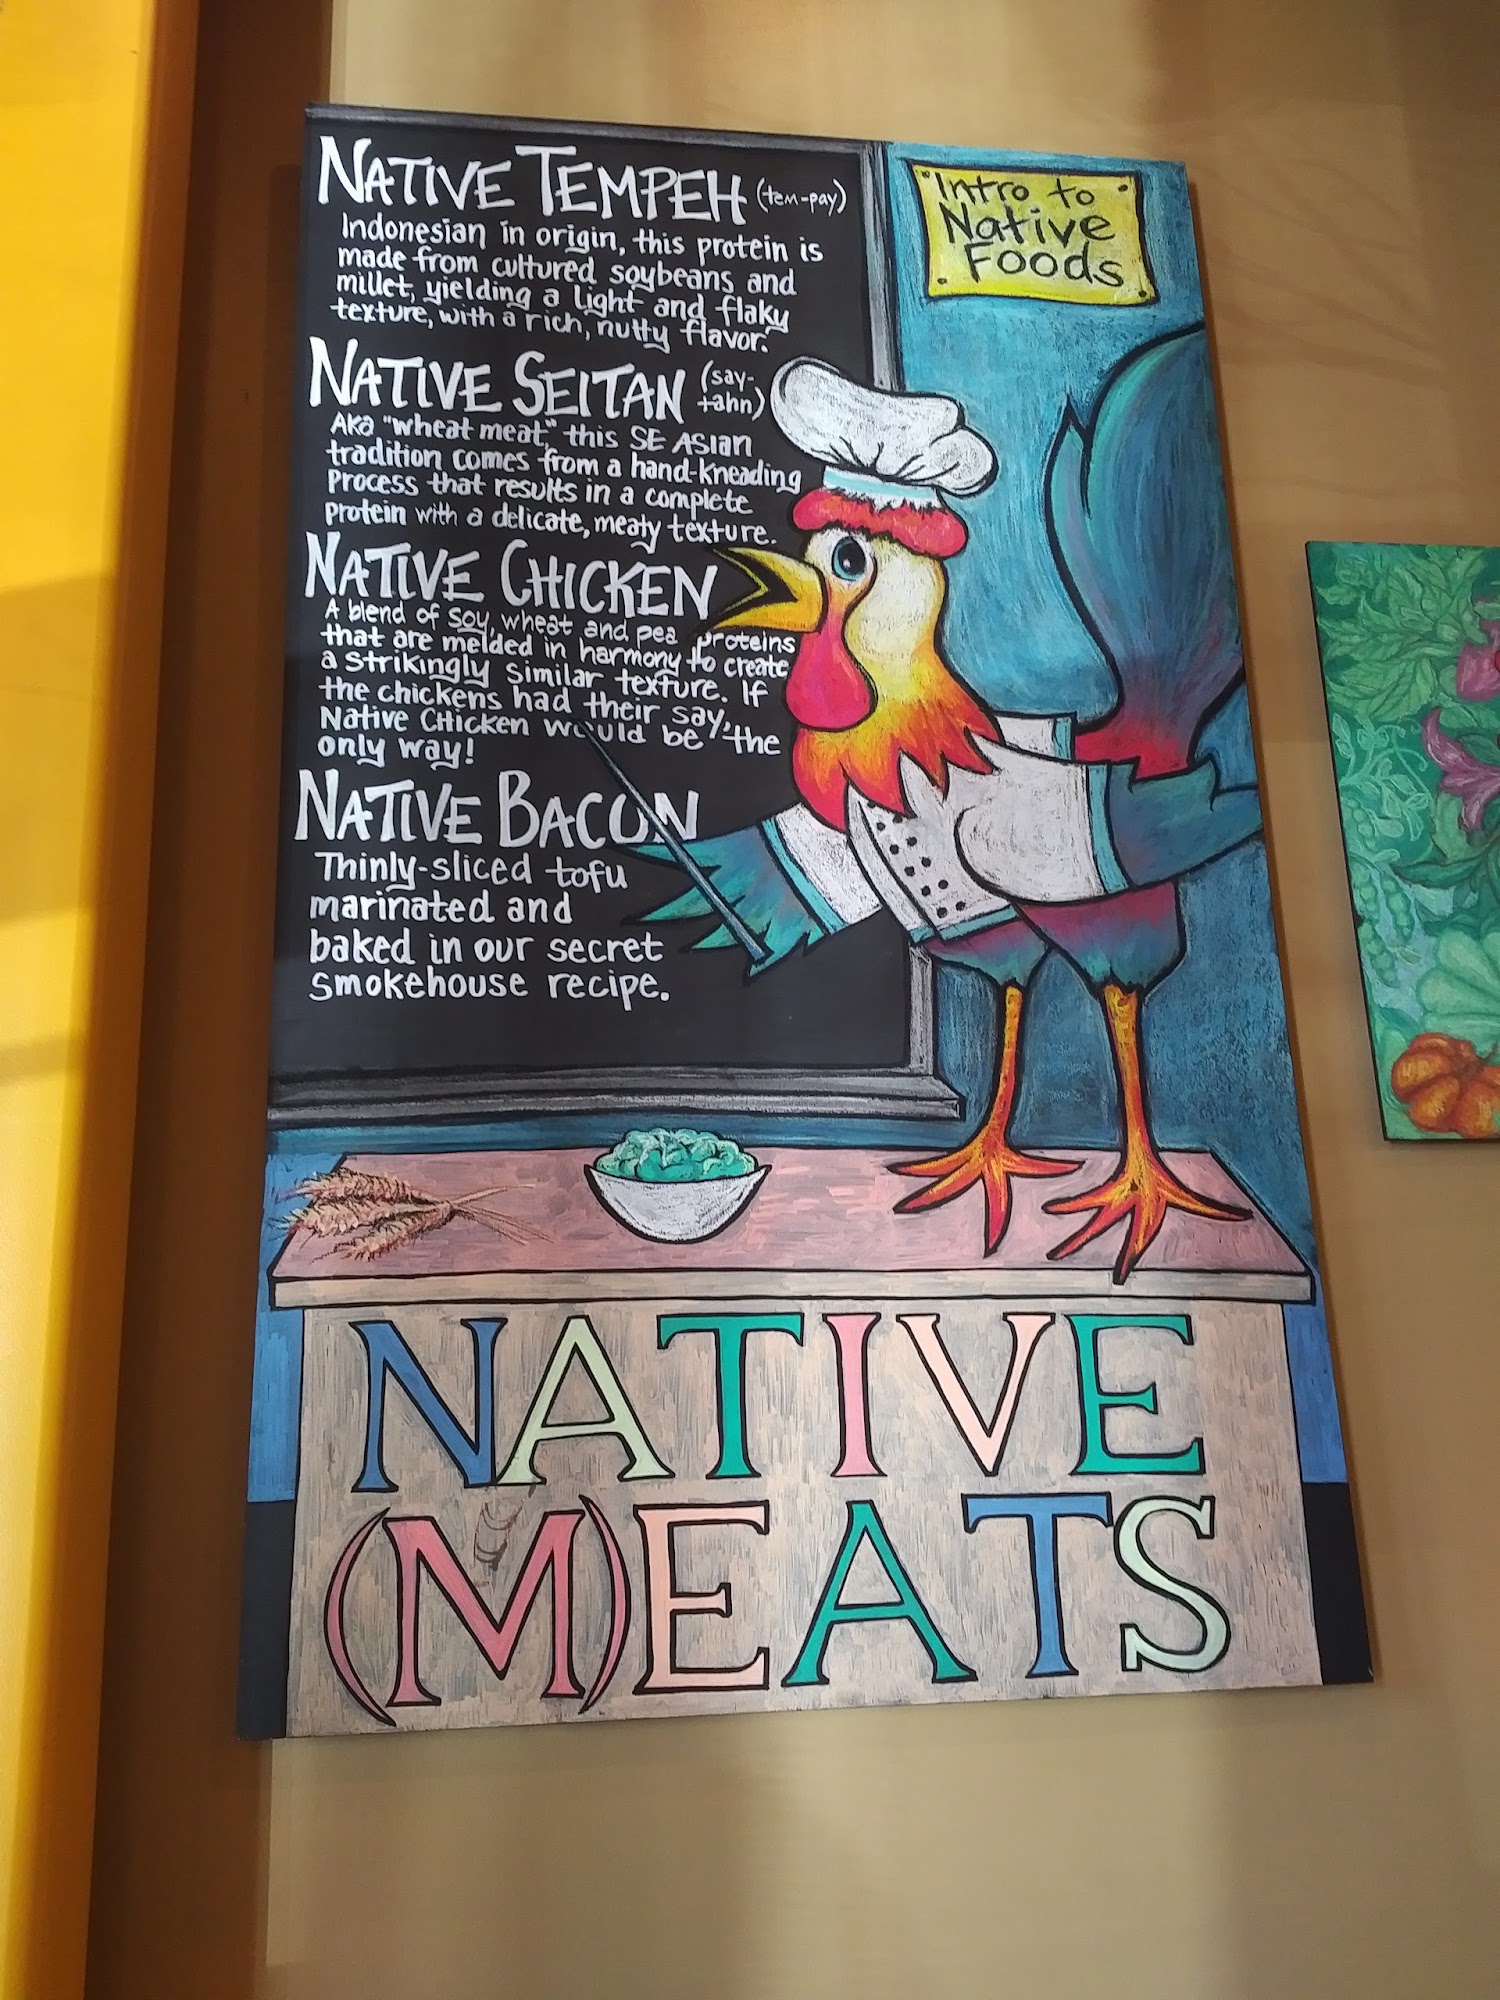 NATIVE TEMPEH (tem-pay)
Indonesian in origin, this protein is
made from cultured soybeans and
millet, yielding a light and flaky
texture, with a rich, nutty flavor.
NATIVE SEITAN (say-
tahn)
AKA "wheat meat," this SE Asian
tradition comes from a hand-kneading
process that results in a complete
protein with a delicate, meaty texture.
NATIVE CHICKEN
A blend of soy, wheat and pea proteins
that are melded in harmony to create
a strikingly similar texture. If
the chickens had their say,
Native Chicken would be the
only way!
NATIVE BACON
Thinly-sliced tofu
marinated and
baked in our secret
smokehouse recipe.
Intro to
Native
Foods
NATIVE
(M)EATS